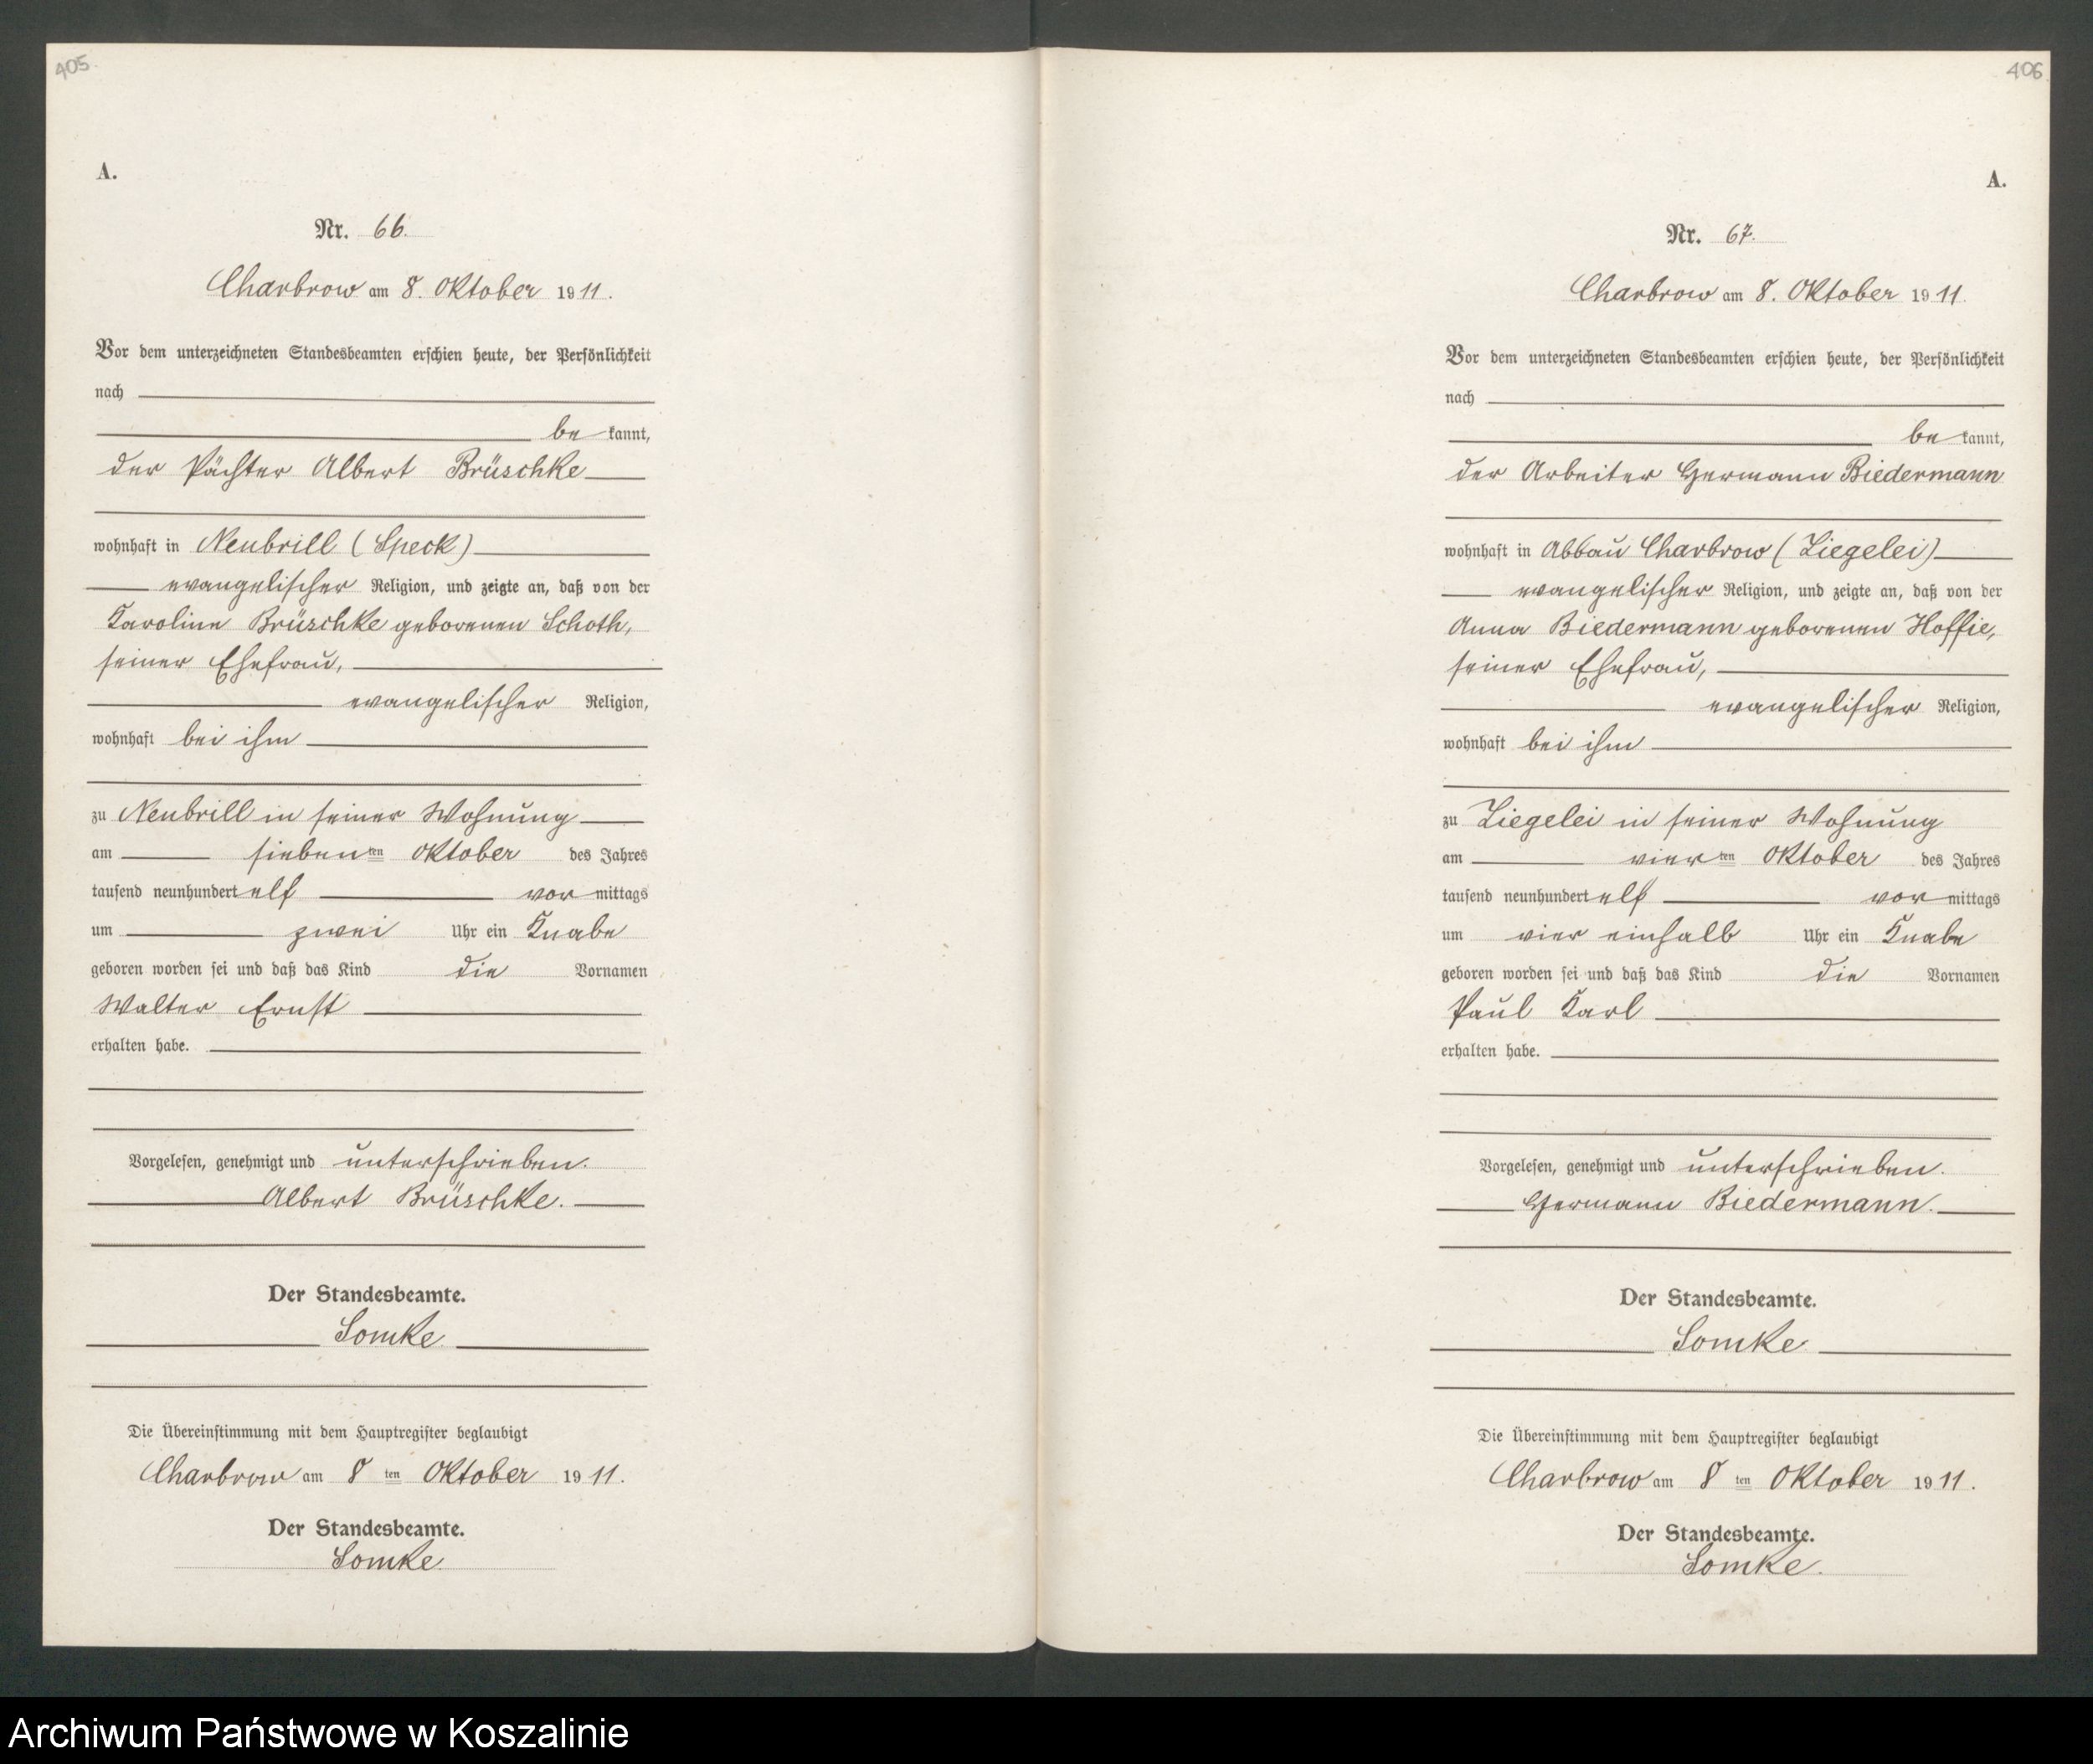 405.
A.
Nr. 66.
Charbrow am 8. Oktober 1911.
Vor dem unterzeichneten Standesbeamten erschien heute, der Persönlichkeit
nach
be kannt,
der Pächter Albert Brüschke
wohnhaft in Neubrill (Speck)
evangelischer Religion, und zeigte an, daß von der
Karoline Brüschke geborenen Schoth,
seiner Ehefrau,
evangelischer Religion,
wohnhaft bei ihm
zu Neubrill in seiner Wohnung
am siebenten Oktober des Jahres
tausend neunhundert elf vor mittags
um zwei Uhr ein Knabe
geboren worden sei und daß das Kind die Vornamen
Walter Ernst
erhalten habe.
Vorgelesen, genehmigt und unterschrieben.
Albert Brüschke.
Der Standesbeamte.
Somke.
Die Übereinstimmung mit dem Hauptregister beglaubigt
Charbrow am 8 ten Oktober 1911.
Der Standesbeamte.
Somke.
406
A.
Nr. 67.
Charbrow am 8. Oktober 1911.
Vor dem unterzeichneten Standesbeamten erschien heute, der Persönlichkeit
nach
be kannt,
der Arbeiter Hermann Biedermann
wohnhaft in Abbau Charbrow (Ziegelei)
evangelischer Religion, und zeigte an, daß von der
Anna Biedermann geborenen Hoffie,
seiner Ehefrau,
evangelischer Religion,
wohnhaft bei ihm
zu Ziegelei in seiner Wohnung
am vierten Oktober des Jahres
tausend neunhundert elf vor mittags
um vier einhalb Uhr ein Knabe
geboren worden sei und daß das Kind die Vornamen
Paul Karl
erhalten habe.
Vorgelesen, genehmigt und unterschrieben.
Hermann Biedermann.
Der Standesbeamte.
Somke.
Die Übereinstimmung mit dem Hauptregister beglaubigt
Charbrow am 8 ten Oktober 1911.
Der Standesbeamte.
Somke.
Archiwum Państwowe w Koszalinie